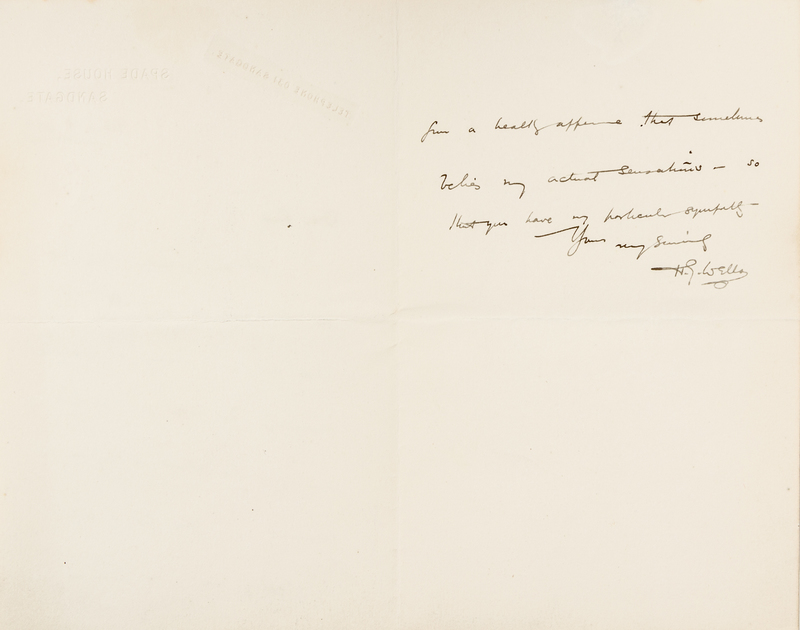 SPADE HOUSE,
SANDGATE
from a healthy appearance that sometimes
belies my actual sensations – so
that you have my particular sympathy –
Yours very sincerely
H.G. Wells